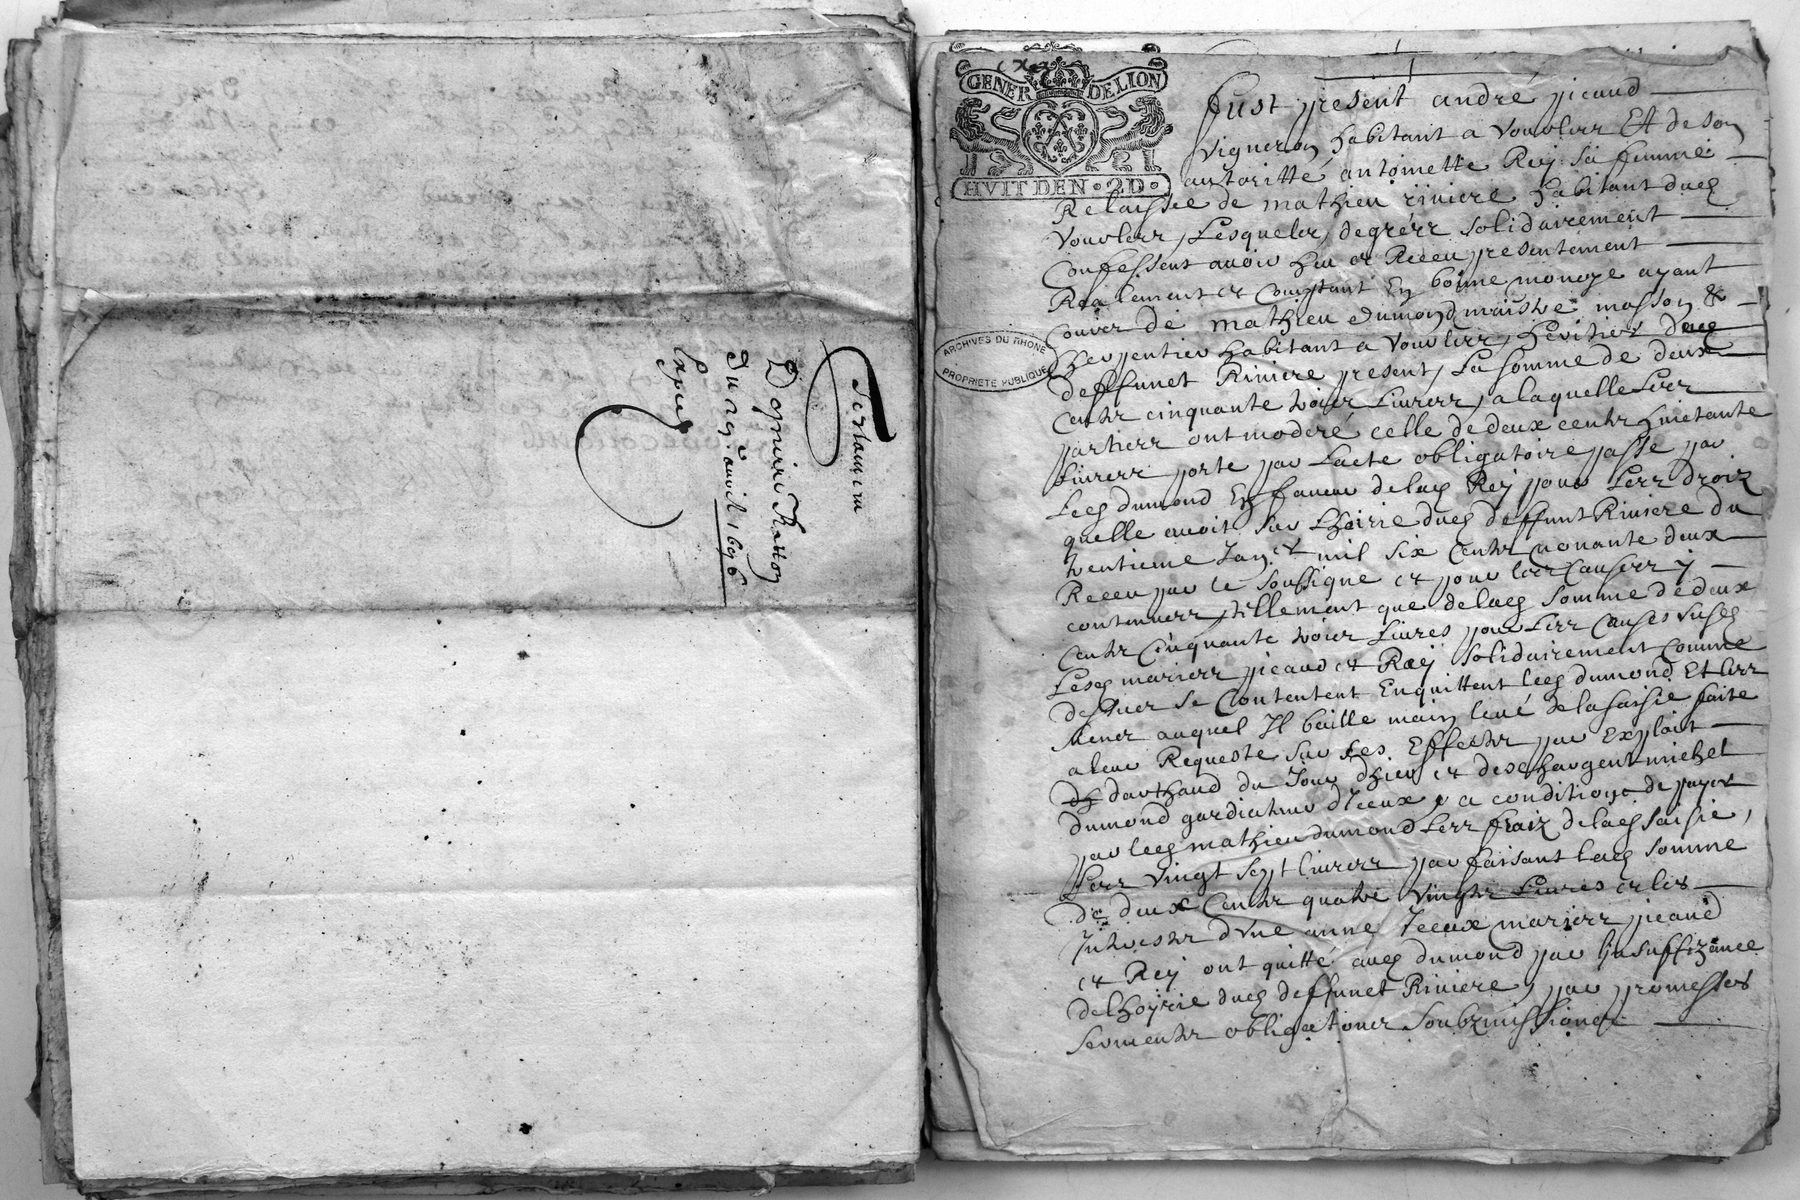 Testament
Du 9e avril 1696
Expud
GENER DELION
HVIT DEN · 2D ·
ARCHIVES DU RHONE
PROPRIETE PUBLIQUE
fust present andré picaud
vigneron habitant a Vouvlerr Et de son
autoritté antoinette Rey sa femme
Relaissee de mathieu riviere habitant dud
Vouvlerr, Lesquelerr, degrerr solidairement
Confessent avoir heu et Receu presentement
Reallement et Comptant En bonne monoye ayant
Couvr de mathieu dumond maistre masson &
Cherpentier habitant a Vouvlerr, heritier dud
deffunct Riviere present, La somme de deux
Centz cinquante troier Livrerr, a laquelle Lerr
partierr ont moderé celle de deux centz huictante
livrerr porté par Lacte obligatoire passé par
Led dumond En faveur de lad Rey pour Lerr droiz
quelle avoit sur Lhoirie dud deffunt Riviere du
trentieme Janer mil six Centz nonante deux
Receu par le soussigne et pour lerr Causerr y
contenuerr, tellement que de lad somme de deux
Centz Cinquante troier Livres pour Lerr Causes susd
Lesd marierr picaud et Rey solidairement Comme
dessuer se Contentent Enquittent led dumond Et lerr
siener auquel Il baille main levé de la saisie faite
a leur Requeste sur ses Effectz par Exploit
darthaud du Jour dhier et deschargent michel
dumond gardiateur dIceux, a conditione de payer
par led mathieu dumond Lerr fraiz de lad saisie,
Lerr vingt sept livrerr parfaisant lad somme
de deux Centz quatre vingtz Livres et les
Interestz dvne anne Iceux marierr picaud
et Rey ont quitté aud dumond par Linsuffizance
de lhoyrie dud deffunct Riviere, par promesses
sermentz obligationer soubzmissioner